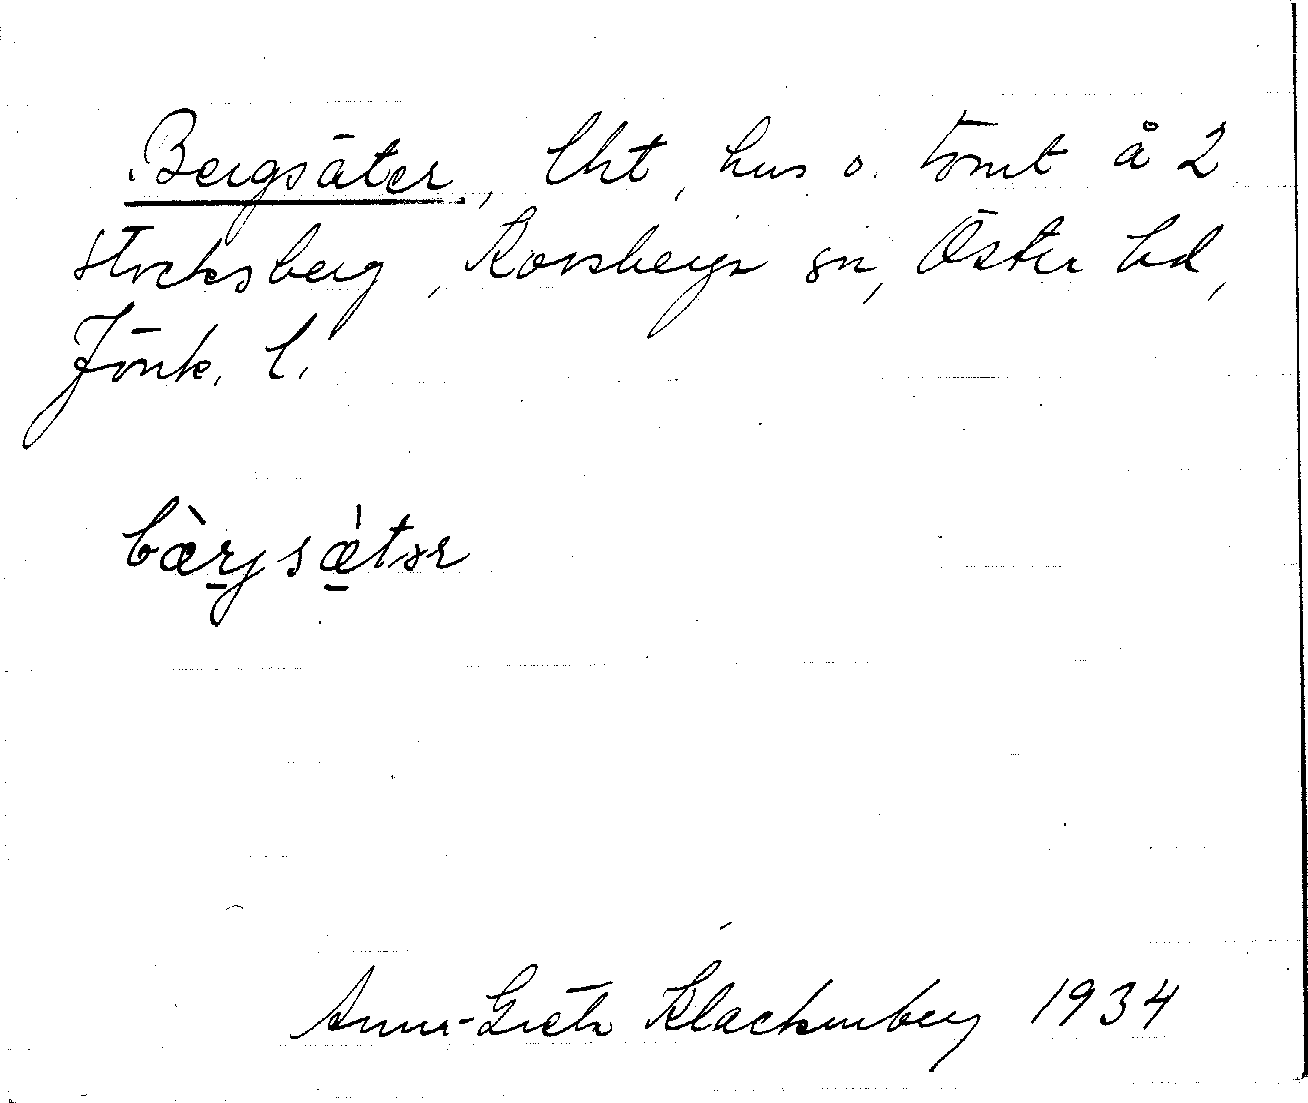 Bergsäter, lht, hus o. tomt å 2
Stocksberg, Korsberga sn, Öster hd,
Jönk. l.
bæ̀rjsæ̍tər
Anna-Greta Klackenberg 1934